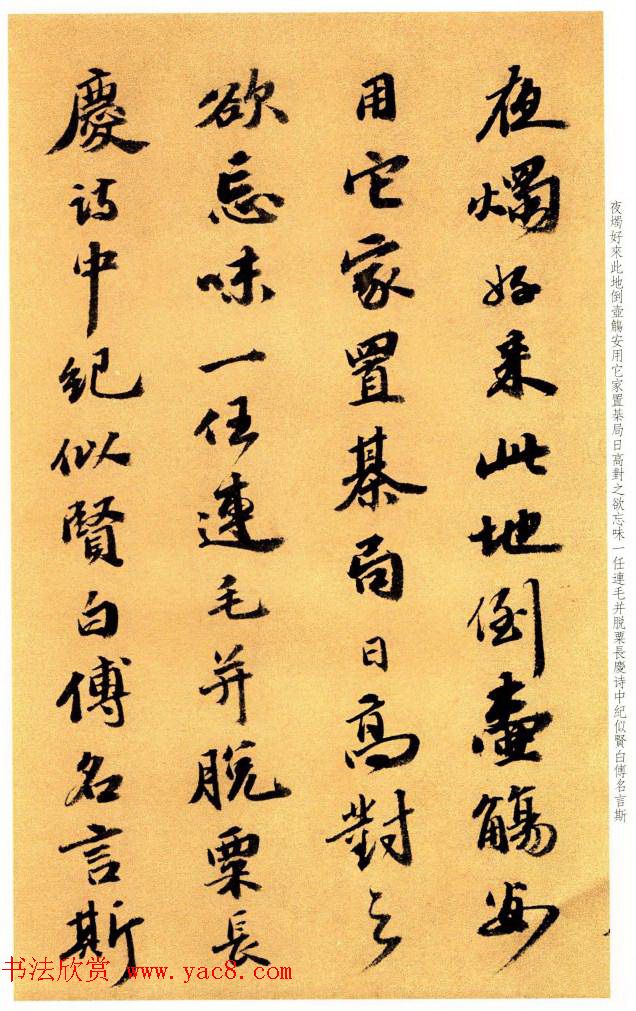 夜燭好来此地倒壷觴安
用它家置棊局日高對之
欲忘味一任連毛并脱粟長
慶诗中紀似賢白傅名言斯
夜燭好來此地倒壷觴安用它家置棊局日高對之欲忘味一任連毛并脱粟長慶诗中紀似賢白傅名言斯
书法欣赏 www.yac8.com